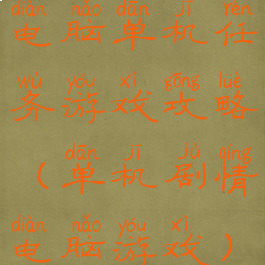 diàn nǎo dān jī rèn
电脑单机任
wù yóu xì gōng lüè
务游戏攻略
dān jī jù qíng
（单机剧情
diàn nǎo yóu xì
电脑游戏）